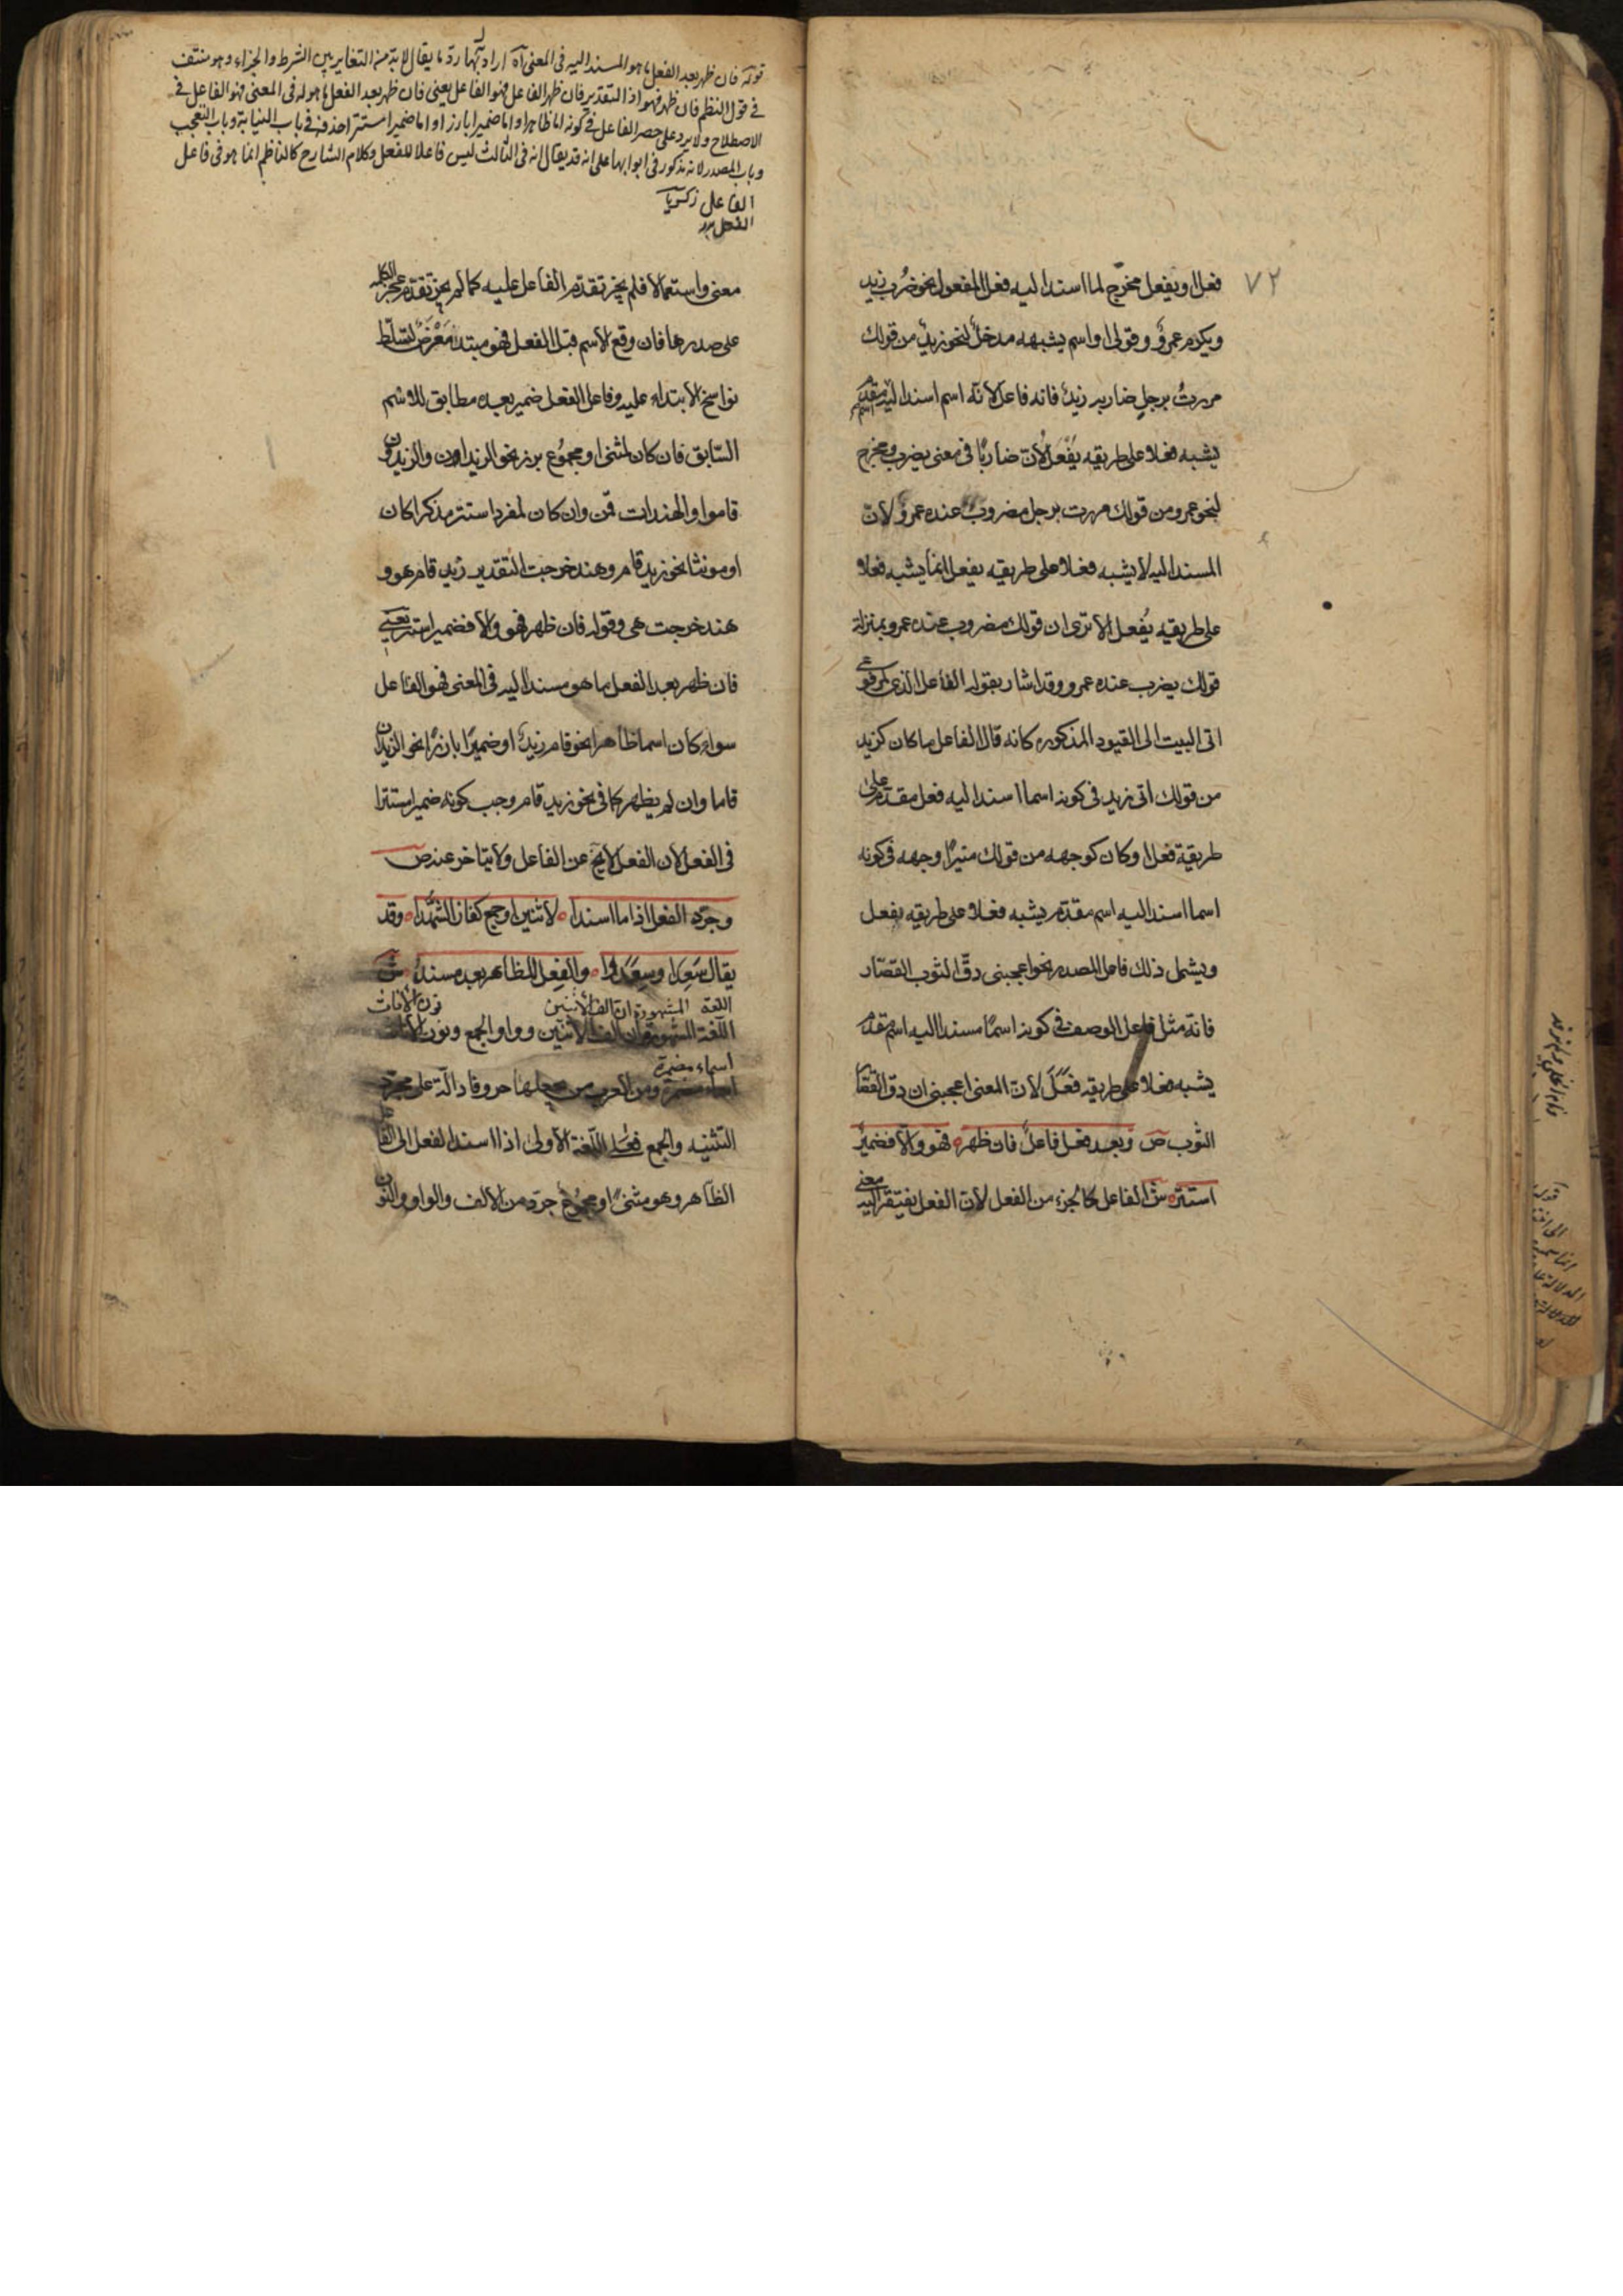 ٧٢
فعل او يفعل مخرج لما اسند اليه فعل المفعول نحو ضُرب زيد
ويكرم عمرٌو وقولى او اسم يشبهه مدخلٌ لنحو زيدٌ من قولك
مررتُ برجلٍ ضاربٍ زيدٌ فانه فاعل لانّه اسم اسند اليه اسم مقدم
يشبه فعلا على طريقه يَفْعَلُ لأن ضاربًا فى معنى يضرب ومخرج
لنحو عمرو من قولك مررت برجل مضروبٌ عنده عمروٌ لانّ
المسند اليه لا يشبه فعلا على طريقيه يفعل انما يشبه فعلا
على طريقيه يُفعل الا ترى ان قولك مضروب عنده عمرو بمنزلة
قولك يضرب عنده عمرو وقد اشار بقوله الفاعل الذى كمرفوعى
اتى البيت الى القيود المذكوره كانه قال الفاعل ما كان كزيد
من قولك اتى زيد فى كونه اسما اسند اليه فعل مقدم على
طريقة فعل او كان كوجهه من قولك منيرًا وجهه فى كونه
اسما اسند اليه اسم مقدّم يشبه فعلا على طريقه يفعل
ويشمل ذلك فاعل المصدر نحو اعجبنى دقّ الثوب القصّار
فانه مثل فاعل الوصف فى كونه اسمًا مسندا اليه اسم مقدم
يشبه فعلا على طريقه فَعَلَ لأن المعنى اعجبنى ان دق القصّا
الثوب ص وبعد فعل فاعلٌ فان ظهر ه فهو والّا فضميرٌ
استتر ه ش الفاعل كالجزء من الفعل لأن الفعل يفتقر اليه معنى
قوله فان ظهر بعد الفعل ما هو المسند اليه فى المعنى آه اراد بهذا رد ما يقال لا بد من التغاير بين الشرط والجزاء وهو منتف
فى قول النظم فان ظهر فهو اذ التقدير فان ظهر الفاعل فهو الفاعل يعنى فان ظهر بعد الفعل ما هو له فى المعنى فهو الفاعل فى
الاصطلاح ولا يرد على حصر الفاعل فى كونه اما ظاهرا واما ضميرا بارزا واما ضميرا مستترا حذفه فى باب النيابة وباب التعجب
وباب المصدر لانه مذكور فى ابوابها على انه قد يقال انه فى الثالث ليس فاعلا للفعل وكلام الشارح كالناظم انما هو فى فاعل
الفاعل زكريا
الفعل
معنى واستعمالا فلم يجز تقدم الفاعل عليه كما لم يجز تقدم عجز الكلمه
على صدرها فان وقع الاسم قبل الفعل فهو مبتدا مَعْرَض لتسلّط
نواسخ الابتداء عليه وفاعل الفعل ضمير بعده مطابق للاسم
السّابق فان كان لمثنى او مجموع برز نحو الزيدان والزيدون
قاموا والهندات قمن وان كان لمفرد استتر مذكرا كان
او مونثا نحو زيد قام وهند خرجت التقدير زيد قام هو و
هند خرجت هى وقوله فان ظهر فهو والّا فضمير استتر يعنى
فان ظهر بعد الفعل ما هو مسند اليه فى المعنى فهو الفاعل
سواء كان اسما ظاهرا نحو قام زيدٌ او ضميرًا بارزًا نحو الزيدان
قاما وان لم يظهر كما فى نحو زيد قام وجب كونه ضميرا مستترا
فى الفعل لأن الفعل لا يخ عن الفاعل ولا يتاخر عنه ص
وجرّد الفعل اذا ما اسندا ه لاثنين او جمع كفاز الشُّهدا ه وقد
يقال سَعِدا وسعدوا ه والفعل للظاهر بعد مسند ش
اللغة المشهورة ان الف الاثنين نون الاناث
اللّغة المشهورة ان الف الاثنين وواو الجمع ونون الاناث
اسماء مضمرة
اسماء مضمرة ومن العرب من يجعلها حروفا دالّة على مجرّد
التثنيه والجمع فعلى اللّغة الأولى اذا اسند الفعل الى الفا
الظّاهر وهو مثنىً او مجموع جرّد من الالف والواو والنون